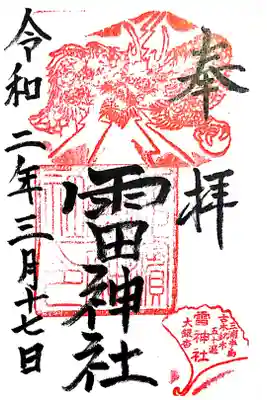 奉拝
雷神社
令和二年三月十七日
雷神社
大銀杏